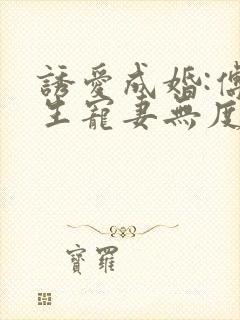 誘愛成婚:傅
生寵妻無度
寶羅